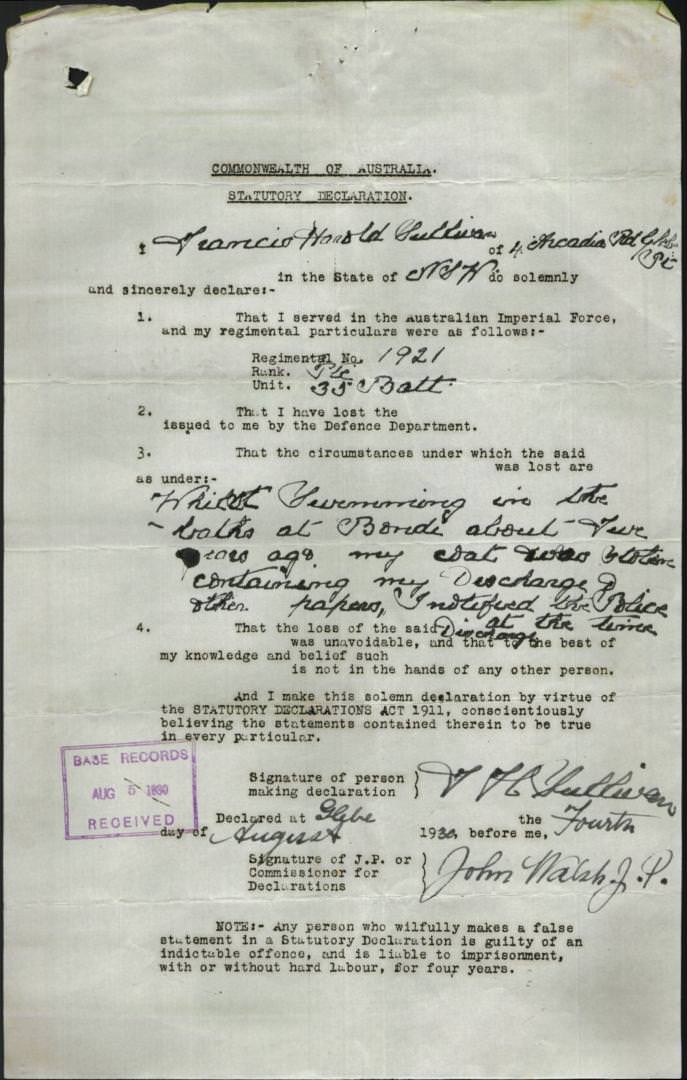 COMMONWEALTH OF AUSTRALIA.
STATUTORY DECLARATION.
I Francis Harold Sullivan of 4 Arcadia Rd Glebe
Pt
in the State of NSW do solemnly
and sincerely declare:-
1. That I served in the Australian Imperial Force,
and my regimental particulars were as follows:-
Regimental No. 1921
Rank. Pte
Unit. 35 Batt.
2. That I have lost the
issued to me by the Defence Department.
3. That the circumstances under which the said
was lost are
as under:-
Whilst Swimming in the
baths at Bondi about five
years ago my coat was stolen
containing my Discharge &
other papers, I notified the Police
at the time
4. That the loss of the said Discharge
was unavoidable, and that to the best of
my knowledge and belief such
is not in the hands of any other person.
And I make this solemn declaration by virtue of
the STATUTORY DECLARATIONS ACT 1911, conscientiously
believing the statements contained therein to be true
in every particular.
BASE RECORDS
AUG 5 1930
RECEIVED
Signature of person
making declaration } F H Sullivan
Declared at Glebe the Fourth
day of August 1930 before me,
Signature of J.P. or
Commissioner for
Declarations } John Walsh. J. P.
NOTE:- Any person who wilfully makes a false
statement in a Statutory Declaration is guilty of an
indictable offence, and is liable to imprisonment,
with or without hard labour, for four years.